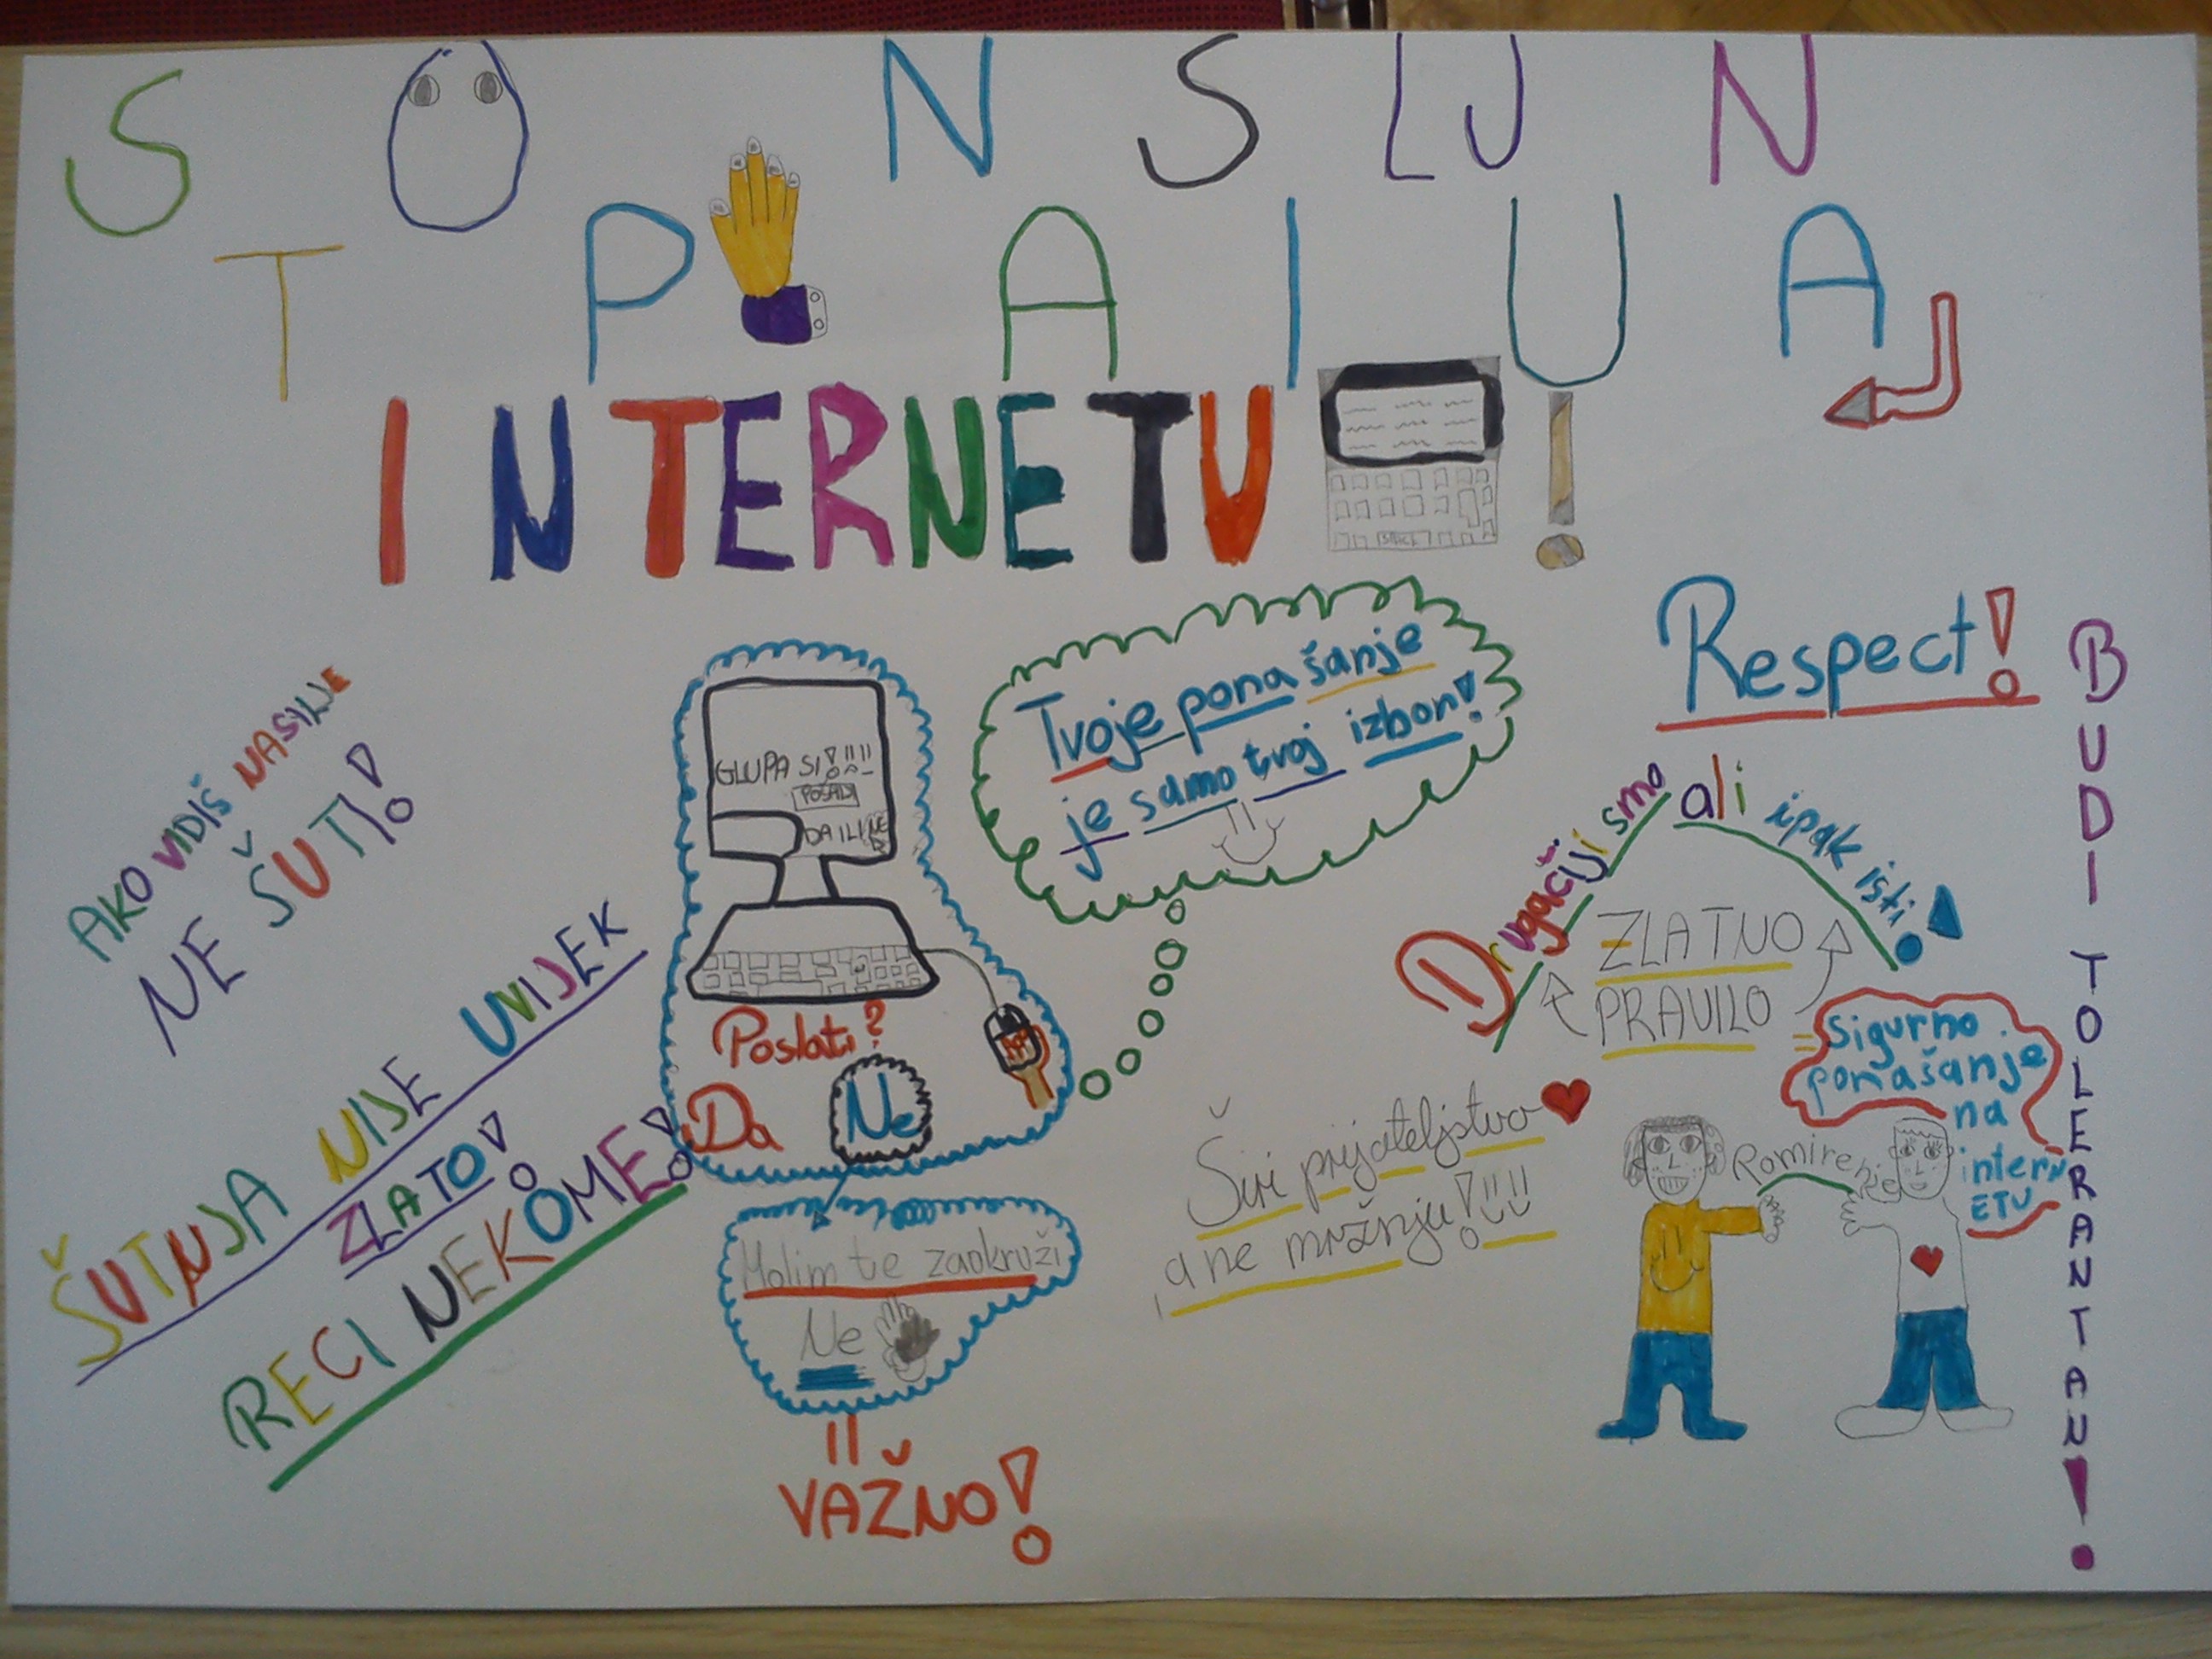 STOP NASILJU NA
INTERNETU!
AKO VIDIŠ NASILJE
NE ŠUTI!
ŠUTNJA NIJE UVIJEK
ZLATO!
RECI NEKOME!
GLUPA SI!!!!
POŠALJI
DA ILI NE
Poslati?
Da Ne
Molim te zaokruži
Ne
VAŽNO!
Tvoje ponašanje
je samo tvoj izbor!
Respect!
Drugačiji smo ali ipak isti!
ZLATNO
PRAVILO
Širi prijateljstvo
a ne mržnju!!!!
Pomirenje
Sigurno
ponašanje
na
intern
ETU
BUDI TOLERANTAN!